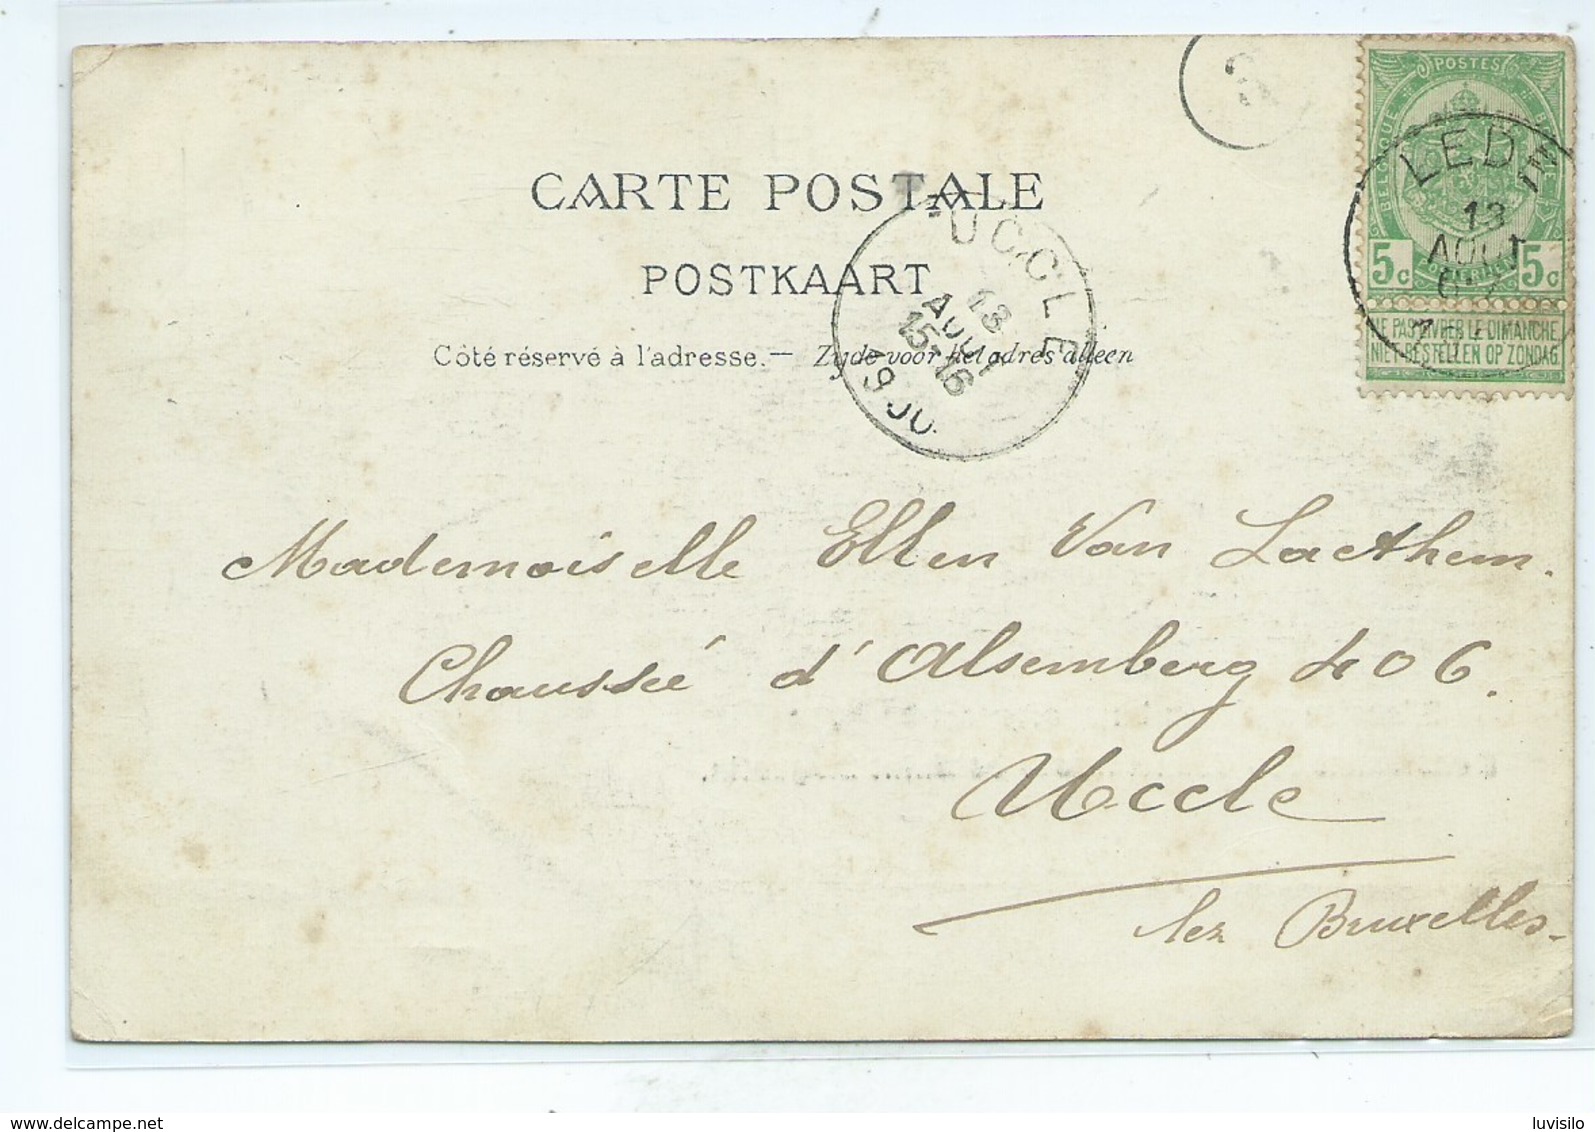 3
POSTES
BELGIQUE
5c 5c
NE PAS LIVRER LE DIMANCHE
NIET BESTELLEN OP ZONDAG
LEDE
13
AOUT
CARTE POSTALE
POSTKAART
Côté réservé à l'adresse.— Zyde voor het adres alleen
UCCLE
13
AOUT
15-16
1900
Mademoiselle Ellen Van Laethem.
Chaussée d'Alsemberg 406.
Uccle
lez Bruxelles-
www.delcampe.net
luvisilo